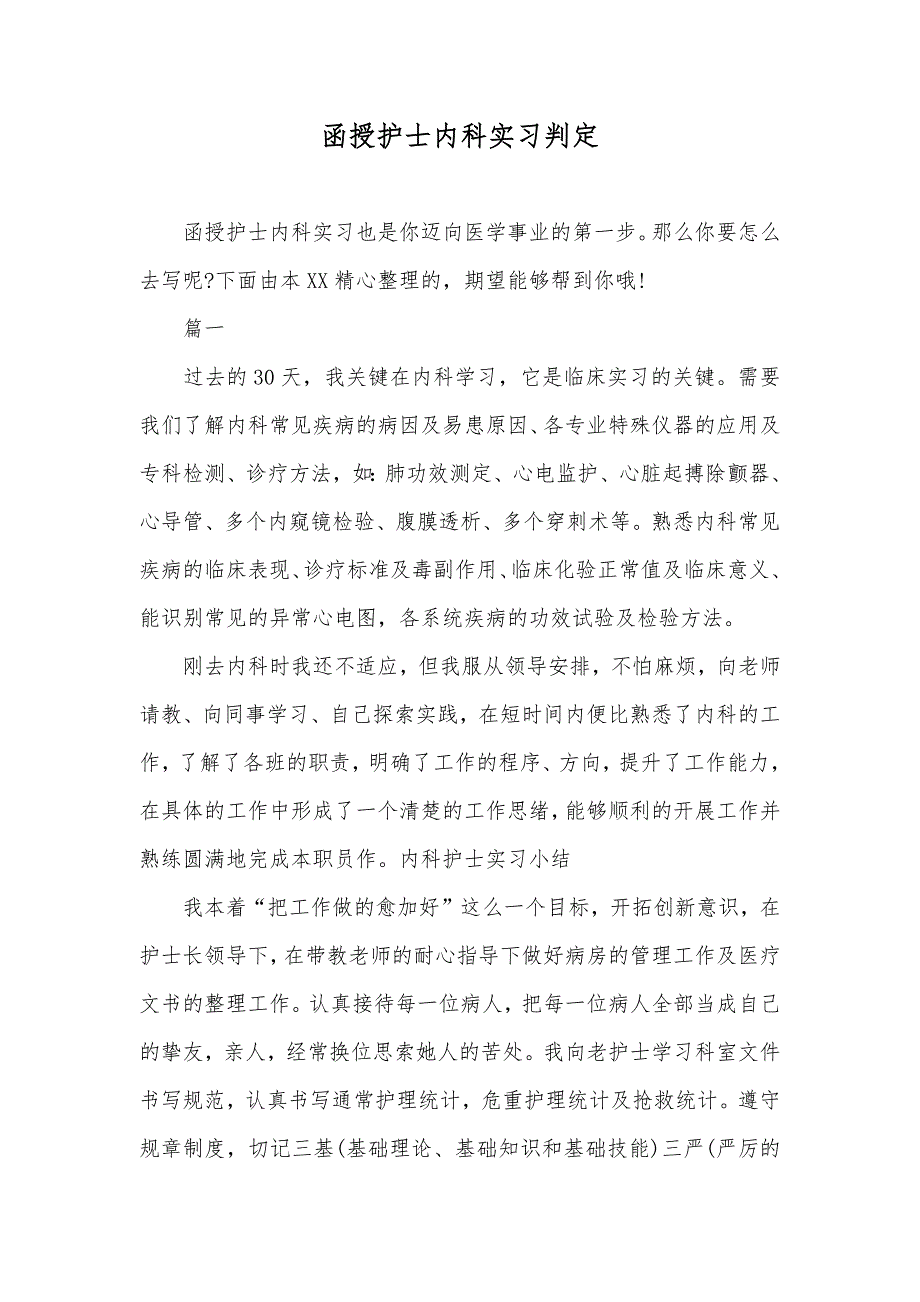 函授护士内科实习判定
函授护士内科实习也是你迈向医学事业的第一步。那么你要怎么
去写呢?下面由本XX精心整理的，期望能够帮到你哦!
篇一
过去的30天，我关键在内科学习，它是临床实习的关键。需要
我们了解内科常见疾病的病因及易患原因、各专业特殊仪器的应用及
专科检测、诊疗方法，如：肺功效测定、心电监护、心脏起搏除颤器、
心导管、多个内窥镜检验、腹膜透析、多个穿刺术等。熟悉内科常见
疾病的临床表现、诊疗标准及毒副作用、临床化验正常值及临床意义、
能识别常见的异常心电图，各系统疾病的功效试验及检验方法。
刚去内科时我还不适应，但我服从领导安排，不怕麻烦，向老师
请教、向同事学习、自己探索实践，在短时间内便比熟悉了内科的工
作，了解了各班的职责，明确了工作的程序、方向，提升了工作能力，
在具体的工作中形成了一个清楚的工作思绪，能够顺利的开展工作并
熟练圆满地完成本职员作。内科护士实习小结
我本着“把工作做的愈加好”这么一个目标，开拓创新意识，在
护士长领导下，在带教老师的耐心指导下做好病房的管理工作及医疗
文书的整理工作。认真接待每一位病人，把每一位病人全部当成自己
的挚友，亲人，经常换位思索她人的苦处。我向老护士学习科室文件
书写规范，认真书写通常护理统计，危重护理统计及抢救统计。遵守
规章制度，切记三基(基础理论、基础知识和基础技能)三严(严厉的